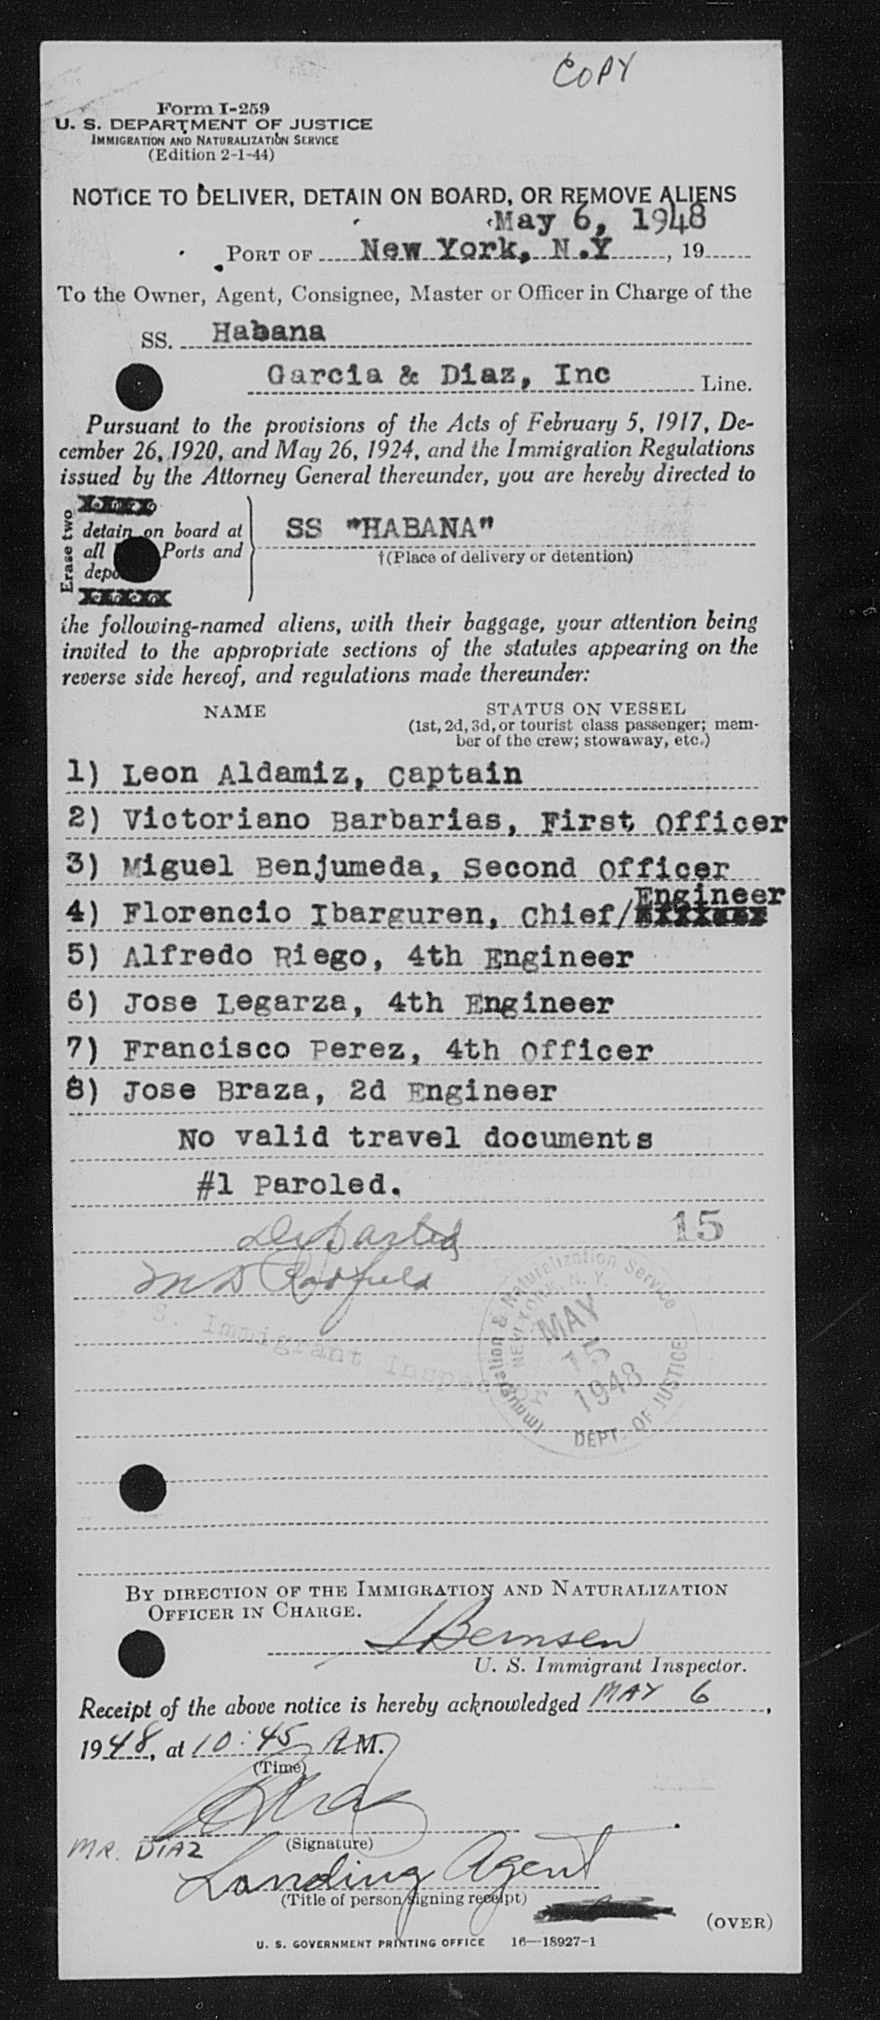 COPY
Form I-259
U. S. DEPARTMENT OF JUSTICE
IMMIGRATION AND NATURALIZATION SERVICE
(Edition 2-1-44)
NOTICE TO DELIVER, DETAIN ON BOARD, OR REMOVE ALIENS
May 6, 1948
PORT OF New York, N.Y, 19
To the Owner, Agent, Consignee, Master or Officer in Charge of the
SS. Habana
Garcia & Diaz, Inc Line.
Pursuant to the provisions of the Acts of February 5, 1917, De-
cember 26, 1920, and May 26, 1924, and the Immigration Regulations
issued by the Attorney General thereunder, you are hereby directed to
Erase two
detain on board at
all Ports and
SS "HABANA"
†(Place of delivery or detention)
the following-named aliens, with their baggage, your attention being
invited to the appropriate sections of the statutes appearing on the
reverse side hereof, and regulations made thereunder:
NAME STATUS ON VESSEL
(1st, 2d, 3d, or tourist class passenger; mem-
ber of the crew; stowaway, etc.)
1) Leon Aldamiz, Captain
2) Victoriano Barbarias, First Officer
3) Miguel Benjumeda, Second Officer
4) Florencio Ibarguren, Chief/Engineer
5) Alfredo Riego, 4th Engineer
6) Jose Legarza, 4th Engineer
7) Francisco Perez, 4th Officer
8) Jose Braza, 2d Engineer
No valid travel documents
#1 Paroled.
Departed 15
S. Immigrant Inspec
Immigration & Naturalization Service
NEW YORK, N. Y.
MAY
15
1948
DEPT. OF JUSTICE
BY DIRECTION OF THE IMMIGRATION AND NATURALIZATION
OFFICER IN CHARGE.
Bernsen
U. S. Immigrant Inspector.
Receipt of the above notice is hereby acknowledged MAY 6,
1948, at 10:45 A M.
(Time)
(Signature)
MR. DIAZ
Landing Agent
(Title of person signing receipt)
(OVER)
U. S. GOVERNMENT PRINTING OFFICE 16—18927-1